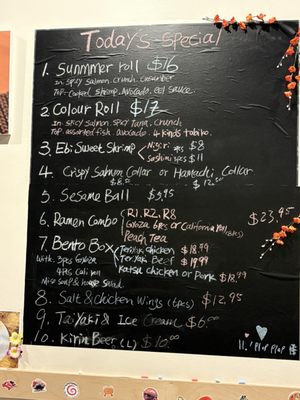 Today's Special
1. Sunmmer roll $16
In spicy Salmon. crunch. cucumber
Top-cooked shrimp. Avocado. eel sauce
2. Colour Roll $17
In spicy salmon. spicy Tuna. crunch
Top assorted fish. avocado. 4 kinds tobiko
3. Ebi Sweet Shrimp Nigiri 2pcs $8
Sashimi 5pcs $11
4. Crispy Salmon Collar or Hamachi Collar
$12.00
5. Sesame Ball $5.95
6. Ramen Combo R1.R2.R8 $23.95
Gyoza 6pcs or California roll (8pcs)
Peach Tea
7. Bento Box Teriyaki chicken $18.99
with. 5pcs Gyoza Teriyaki Beef $19.99
4pcs Cali roll Katsu chicken or Pork $18.99
Miso soup & house Salad
8. Salt & chicken Wings (6pcs) $12.95
9. Taiyaki & Ice Cream $6.00
10. Kirin Beer (L) $10.00